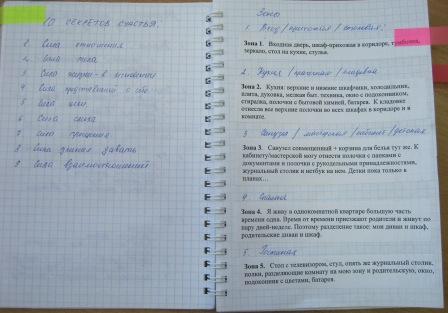 10 СЕКРЕТОВ СЧАСТЬЯ.
1 Сила отношения
2. Сила тела
3 Сила
4 Сила представления о себе
5 Сила цели
6 Сила смеха
7 Сила прощения
8 Сила умения давать
9 Сила взаимоотношений
Зоны
1. Вход / прихожая / столовая.
Зона 1. Входная дверь, шкаф-прихожая в коридоре, тумбочка,
зеркало, стол на кухне, стулья.
2. Кухня / кладовая
Зона 2. Кухня: верхние и нижние шкафчики, холодильник,
плита, духовка, мелкая быт. техника, окно с подоконником,
стиралка, полочки с бытовой химией, батарея. К кладовке
отнесла все верхние полочки во всех шкафах в коридоре и в
комнате.
3. Санузел / мастерская / кабинет / детская
Зона 3. Санузел совмещенный + корзина для белья тут же. К
кабинету/мастерской могу отнести полочки с папками с
документами и полочки с рукодельными принадлежностями,
журнальный столик и нетбук на нем. Детки пока только в
планах...
4. Спальня
Зона 4. Я живу в однокомнатной квартире большую часть
времени одна. Время от времени приезжают родители и живут по
пару дней-неделе. Поэтому разделение такое: мой диван и шкаф,
родительские диван и шкаф.
5. Гостиная
Зона 5. Стол с телевизором, стул, опять же журнальный столик,
полки, разделяющие комнату на мою зону и родительскую, окно,
подоконник с цветами, батарея.